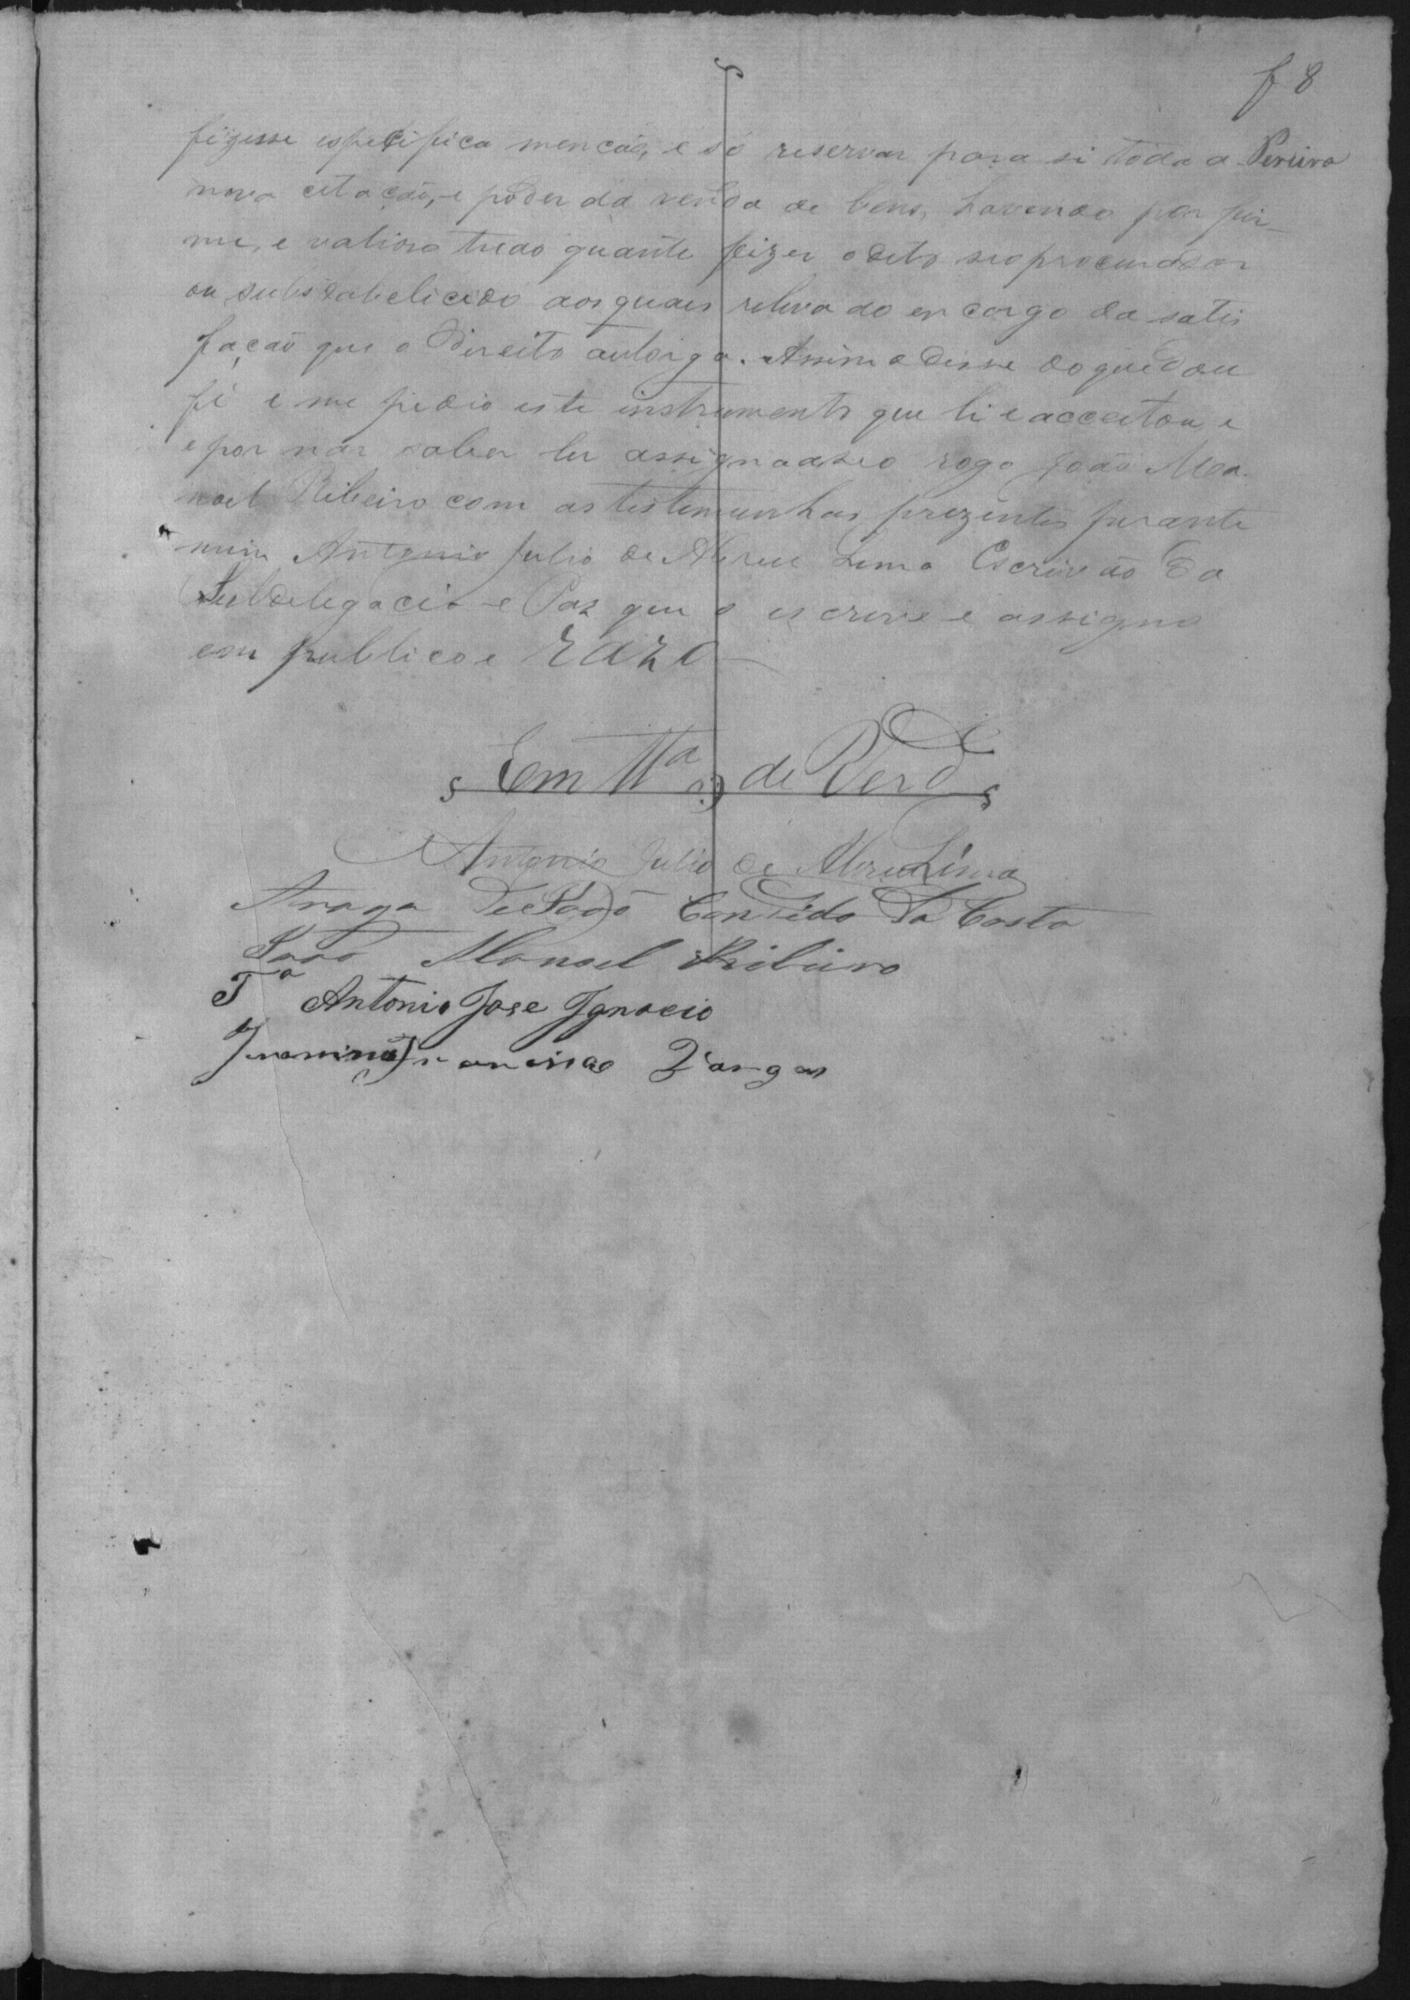 f 8
fizesse espesifica mencão, e só reservar para si toda a Pereira
nova citação, e poder da venda de bens, havendo por fir-
me, e valioso tudo quanto fizer o dito seo procurador
ou substabelicido aos quais releva do encargo da satis
fação que o Direito autorga. Assim o disse do que dou
fé e me pedio este instrumento que li e acceitou, e
e por não saber ler assigna a seo rogo João Ma-
noel Ribeiro com as testemunhas prezentes perante
mim Antonio Julio de Abreu Lima Escrivão da
Subdelegacia e Paz que o escreve e assigno
em publico e razo
Em tta de Verde
Antonio Julio de Abreu Lima
Araga de João Candido da Costa
João Manoel Ribeiro
Ta Antonio Jose Ignacio
Francisco Vargas